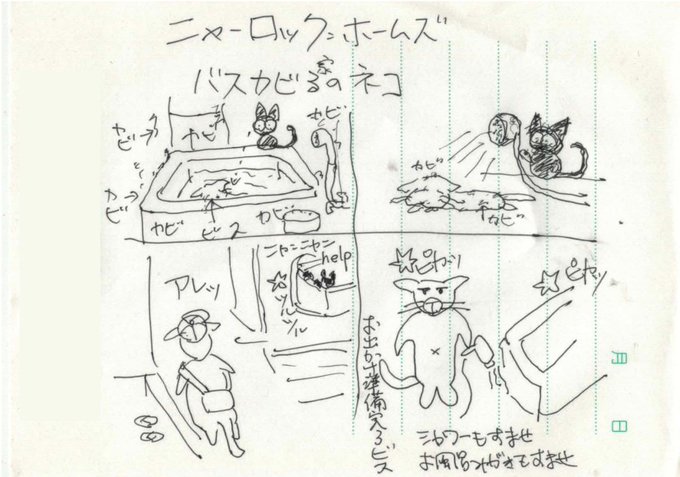 ニャーロック=ホームズ
バスカビる家のネコ
カビ
カビ
カビ
カビ
カビ
カビ
ビス
カビ
カビ
アレッ
ニャンニャン
help
ツルツル
お出かけ準備完るビス
ピカッ
ピカッ
シャワーもすませ
お風呂みがきもすませ
月 日